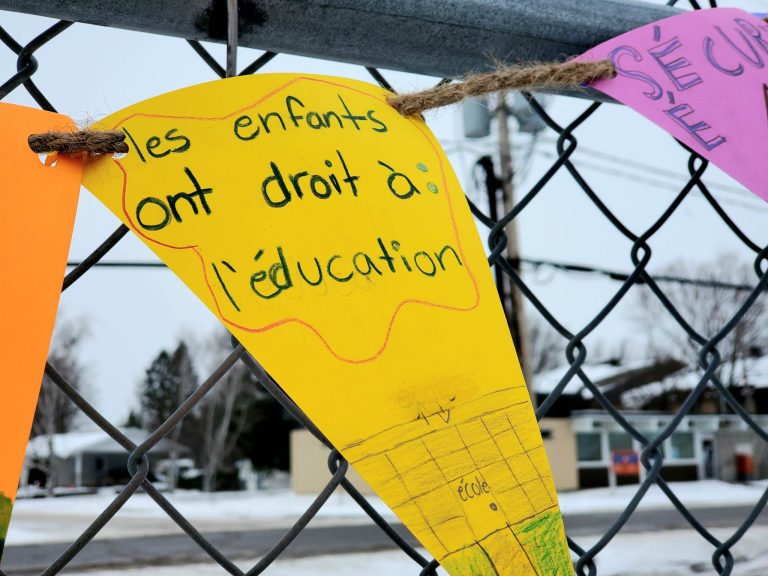 les enfants
ont droit à:
l'éducation
école
SÉCUR
ÉÉ